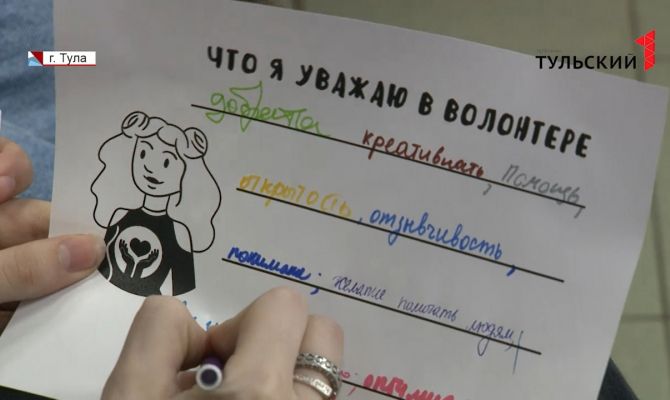 г. Тула
ТУЛЬСКИЙ 1
ЧТО Я УВАЖАЮ В ВОЛОНТЕРЕ
доброта креативность, помощь,
открытость, отзывчивость,
понимание; желание помогать людям,